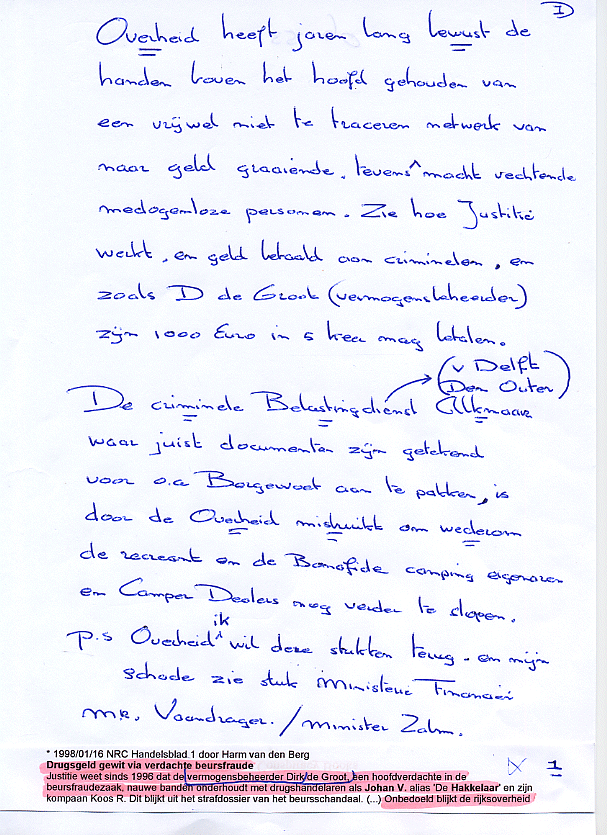 I
Overheid heeft jaren lang bewust de
handen boven het hoofd gehouden van
een vrijwel niet te traceren netwerk van
naar geld graaiende, tevens ^ macht vechtende
medogenloze personen. Zie hoe Justitie
werkt, en geld betaald aan criminelen, en
zoals D de Groot (vermogensbeheerder)
zijn 1000 Euro in 5 keer mag betalen.
(v Delft
Den Outer)
De criminele Belastingdienst Alkmaar
waar juist documenten zijn getekend
voor o.a Borgewoet aan te pakken, is
door de Overheid misbruikt om wederom
de recreant en de Bonafide camping eigenaren
en Camper Dealers nog verder te slopen.
ik
p.s Overheid ^ wil deze stukken terug. en mijn
schade zie stuk Ministerie Financiën
mr. Vaandrager. / minister Zalm.
* 1998/01/16 NRC Handelsblad 1 door Harm van den Berg
Drugsgeld gewit via verdachte beursfraude
Justitie weet sinds 1996 dat de vermogensbeheerder Dirk de Groot, een hoofdverdachte in de
beursfraudezaak, nauwe banden onderhoudt met drugshandelaren als Johan V. alias 'De Hakkelaar' en zijn
kompaan Koos R. Dit blijkt uit het strafdossier van het beursschandaal. (...) Onbedoeld blijkt de rijksoverheid
1